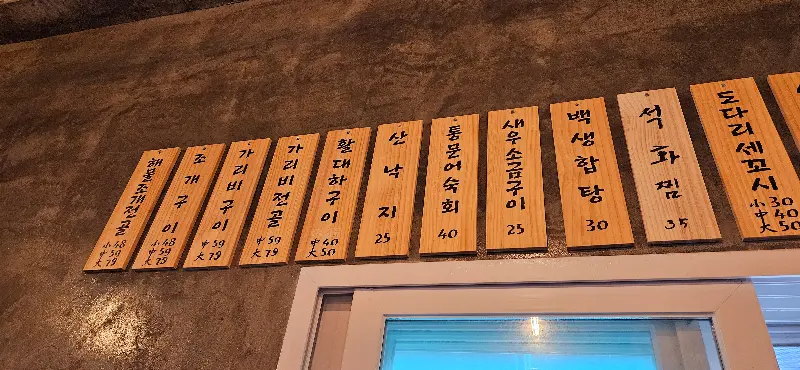 해물조개전골
小 48
中 59
大 79
조개구이
小 48
中 59
大 79
가리비구이
中 59
大 79
가리비전골
中 59
大 79
활대하구이
中 40
大 50
산낙지
25
통문어숙회
40
새우소금구이
25
백생합탕
30
석화찜
35
도다리세꼬시
小 30
中 40
大 50